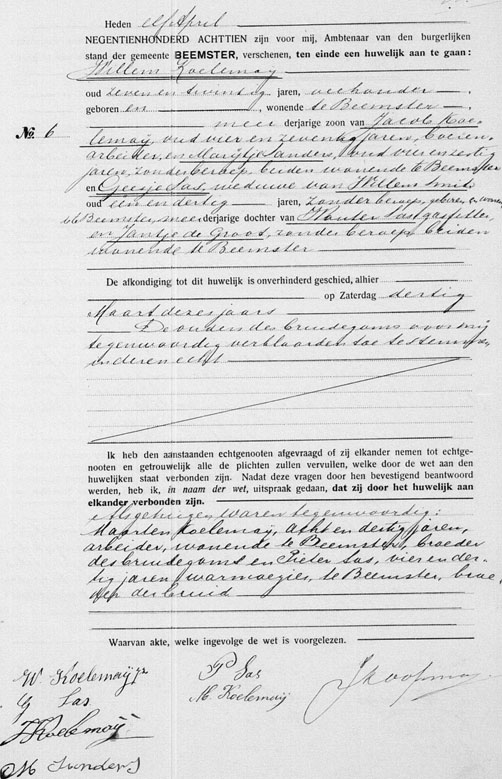 Heden elf April
NEGENTIENHONDERD ACHTTIEN zijn voor mij, Ambtenaar van den burgerlijken
stand der gemeente BEEMSTER, verschenen, ten einde een huwelijk aan te gaan:
Willem Koelemaij
oud zeven en twintig jaren, veehouder
geboren en wonende te Beemster
meerderjarige zoon van Jacob Koe-
No. 6
lemaij, oud vier en zeventig jaren,
arbeider, en Maartje Sanders, oud vier en zestig
jaren, zonder beroep, beiden wonende te Beemster
en Geesje Sas, weduwe van Willem Smit
oud een en dertig jaren, zonder beroep, geboren en wonen-
de te Beemster, meerderjarige dochter van Wouter Sas,
en Jantje de Groot, zonder beroep, beiden
wonende te Beemster
De afkondiging tot dit huwelijk is onverhinderd geschied, alhier
op Zaterdag dertig
Maart dezes jaars
De ouders des bruidegoms alhier
tegenwoordig verklaarden toe te stemmen
in deren echt
Ik heb den aanstaanden echtgenooten afgevraagd of zij elkander nemen tot echtge-
nooten en getrouwelijk alle de plichten zullen vervullen, welke door de wet aan den
huwelijken staat verbonden zijn. Nadat deze vragen door hen bevestigend beantwoord
werden, heb ik, in naam der wet, uitspraak gedaan, dat zij door het huwelijk aan
elkander verbonden zijn.
Als getuigen waren tegenwoordig:
Maarten Koelemaij, acht en dertig jaren,
arbeider, wonende te Beemster, broeder
des bruidegoms en Pieter Sas, vier en der-
tig jaren, warmoezier, te Beemster, broe-
der der bruid
Waarvan akte, welke ingevolge de wet is voorgelezen.
W Koelemaij Jz
P Sas
G Sas
M. Koelemaij
J Koelemaij
M Sanders